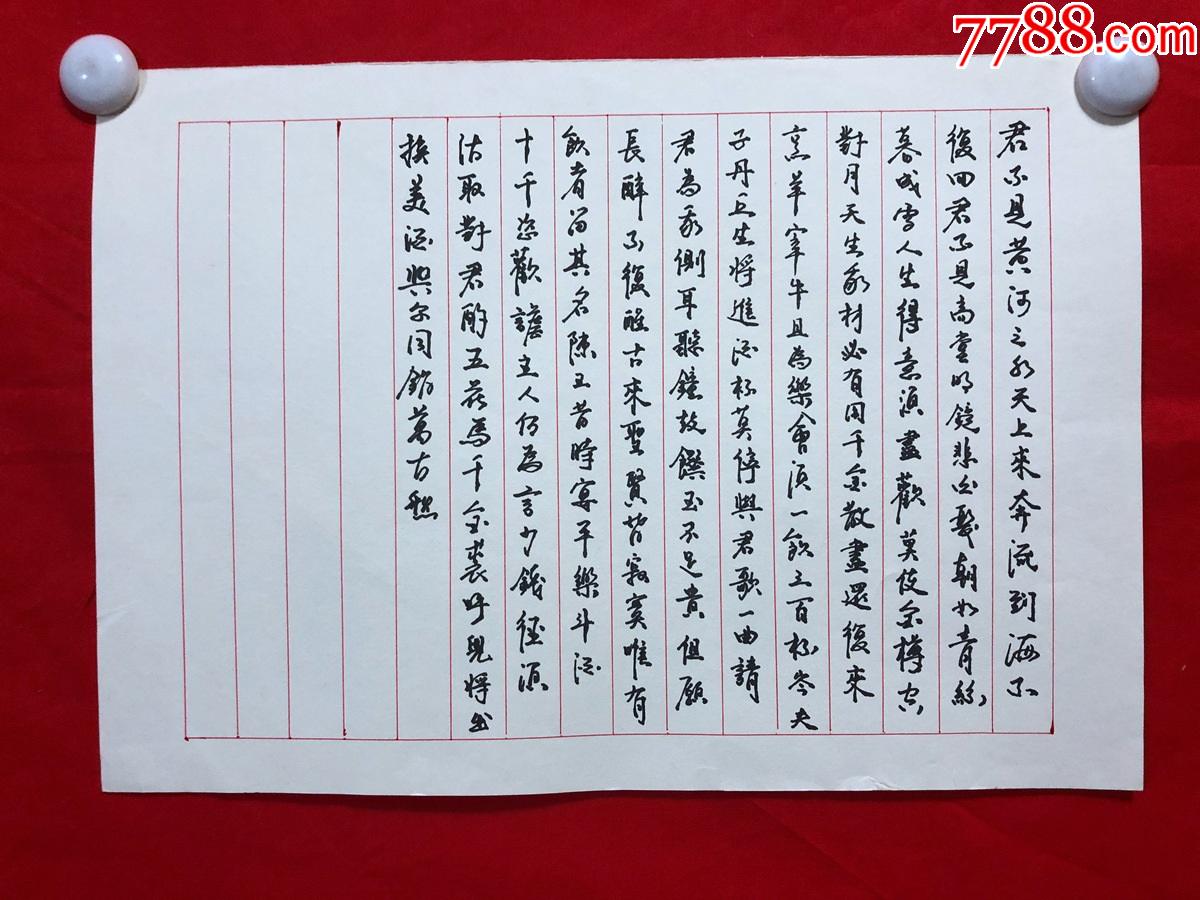 7788.com
君不見黄河之水天上來奔流到海不
復回君不見高堂明鏡悲白髮朝如青絲
暮成雪人生得意須盡歡莫使金樽空
對月天生我材必有用千金散盡還復來
烹羊宰牛且為樂會須一飲三百杯岑夫
子丹丘生將進酒杯莫停與君歌一曲請
君為我側耳聽鐘鼓饌玉不足貴但願
長醉不復醒古來聖賢皆寂寞唯有
飲者留其名陳王昔時宴平樂斗酒
十千恣歡謔主人何為言少錢徑須
沽取對君酌五花馬千金裘呼兒將出
換美酒與尔同銷萬古愁